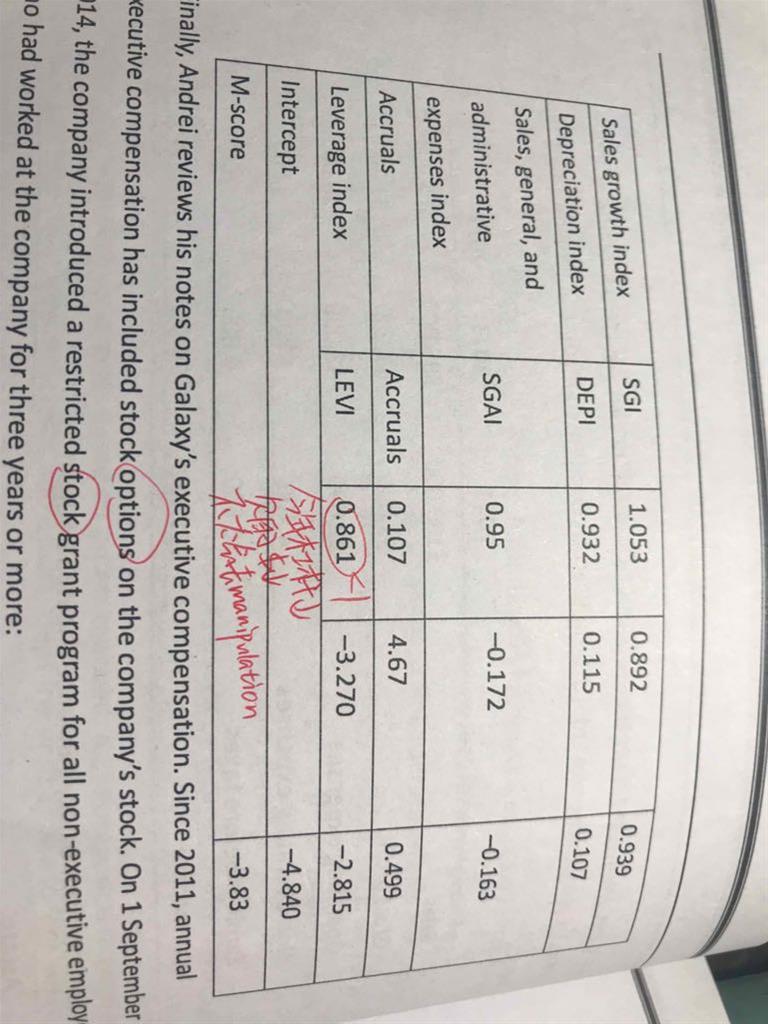 Sales growth index SGI 1.053 0.892 0.939
Depreciation index DEPI 0.932 0.115 0.107
Sales, general, and
administrative SGAI 0.95 −0.172 −0.163
expenses index
Accruals Accruals 0.107 4.67 0.499
Leverage index LEVI 0.861 <1 −3.270 −2.815
Intercept −4.840
M-score manipulation −3.83
inally, Andrei reviews his notes on Galaxy's executive compensation. Since 2011, annual
xecutive compensation has included stock options on the company's stock. On 1 September
014, the company introduced a restricted stock grant program for all non-executive employ
ho had worked at the company for three years or more: